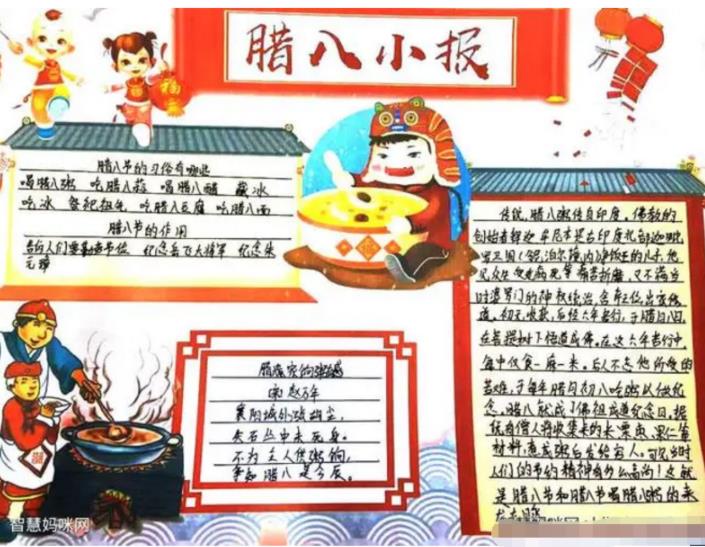 腊八小报
福
腊八节的习俗有哪些
喝腊八粥 吃腊八蒜 喝腊八醋 藏冰
吃冰 祭祀祖先 吃腊八豆腐 吃腊八面
腊八节的作用
告诉人们要勤俭节俭 纪念岳飞大将军 纪念朱
元璋
腊
宋 赵万年
襄阳城外涨胡尘，
矢石丛中未死身。
不为主人供粥饷，
争知腊八是今辰。
传说，腊八粥传自印度。佛教的
创始者释迦牟尼本是古印度北部迦毗
罗卫国（今尼泊尔境内）净饭王的儿子，他
见众生受生老病死等痛苦折磨，又不满当
时婆罗门的神权统治，舍弃王位，出家修
道。初无收获，后经六年苦行，于腊月八日，
在菩提树下悟道成佛。在这六年苦行中，
每日仅食一麻一米。后人不忘他所受的
苦难，于每年腊月初八吃粥以做纪
念。腊八就成了佛祖成道纪念日。
人们的节约精神有什么高尚！这就
是腊八节和腊八节喝腊八粥的来
智慧妈咪网